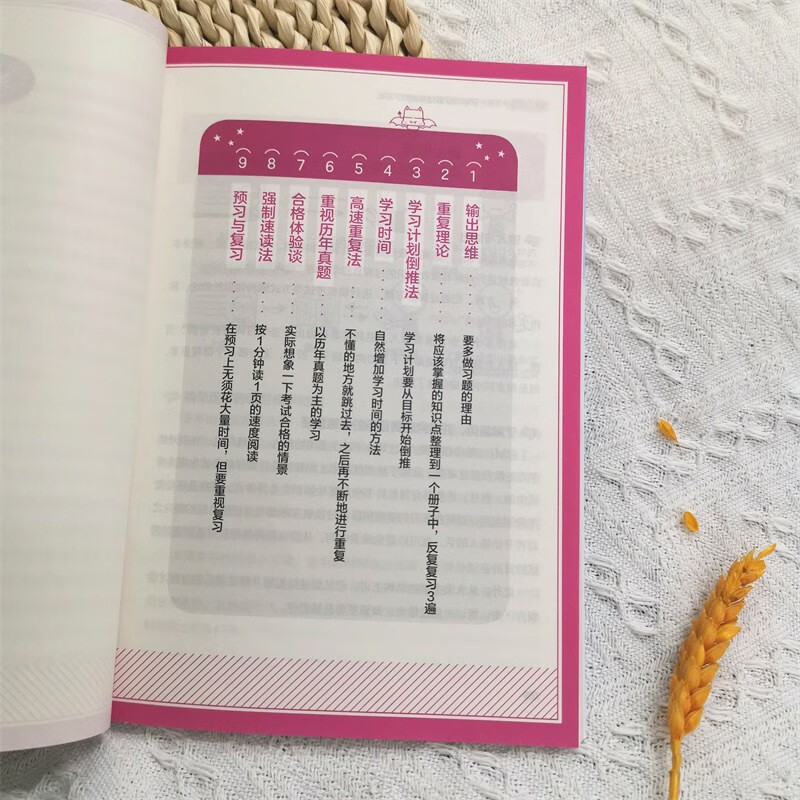 1 输出思维……要多做习题的理由
2 重复理论……将应该掌握的知识点整理到一个册子中，反复复习3遍
3 学习计划倒推法……学习计划要从目标开始倒推
4 学习时间……自然增加学习时间的方法
5 高速重复法……不懂的地方就跳过去，之后再不断地进行重复
6 重视历年真题……以历年真题为主的学习
7 合格体验谈……实际想象一下考试合格的情景
8 强制速读法……按1分钟读1页的速度阅读
9 预习与复习……在预习上无须花大量时间，但要重视复习